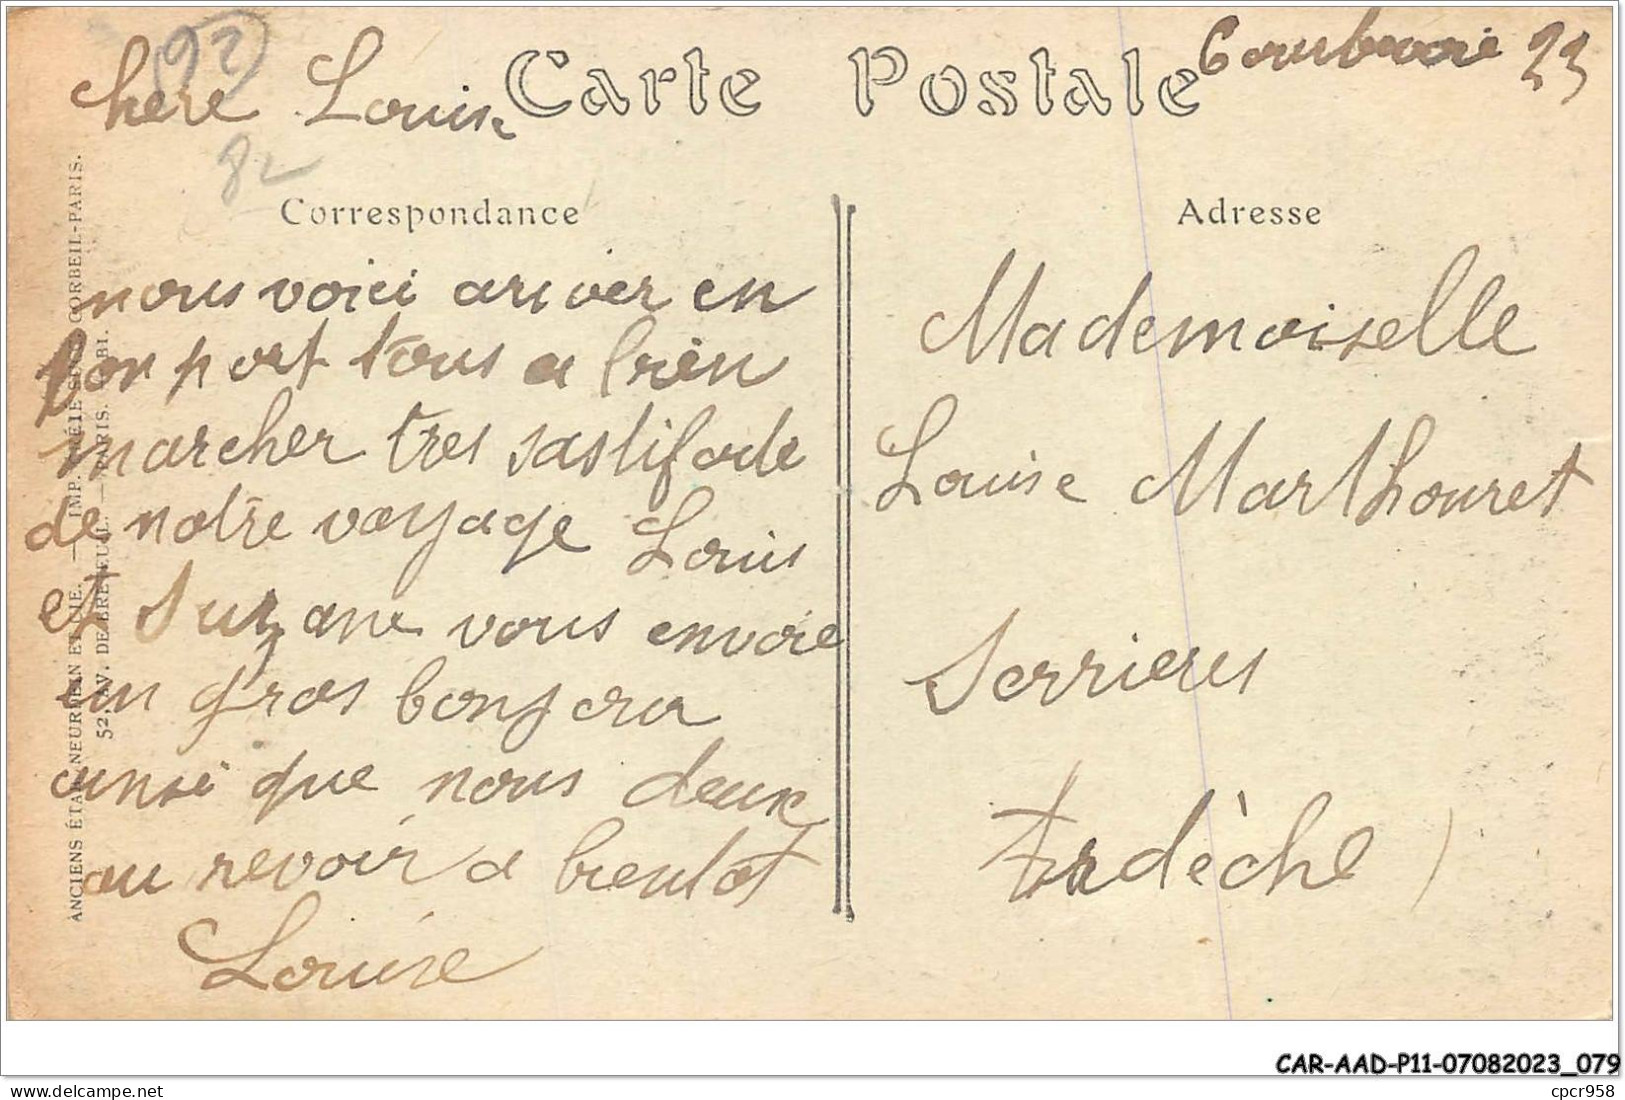 92
Courbevoie 23
Chere Louise
Carte Postale
82
Correspondance
nous voici ariver en
bon port tous a bien
marcher tres sastifade
de notre voyage Louis
et Suzane vous envoie
un gros bonjour
ainsi que nous deux
au revoir a bientot
Louise
Adresse
Mademoiselle
Louise Marthouret
Serrieres
Ardèche)
ANCIENS ÉTAB. NEURDEIN ET CIE. — IMP. CRÉTÉ SUCC. CORBEIL-PARIS.
52, AV. DE BRETEUIL. — PARIS.
CAR-AAD-P11-07082023_079
www.delcampe.net
cpcr958